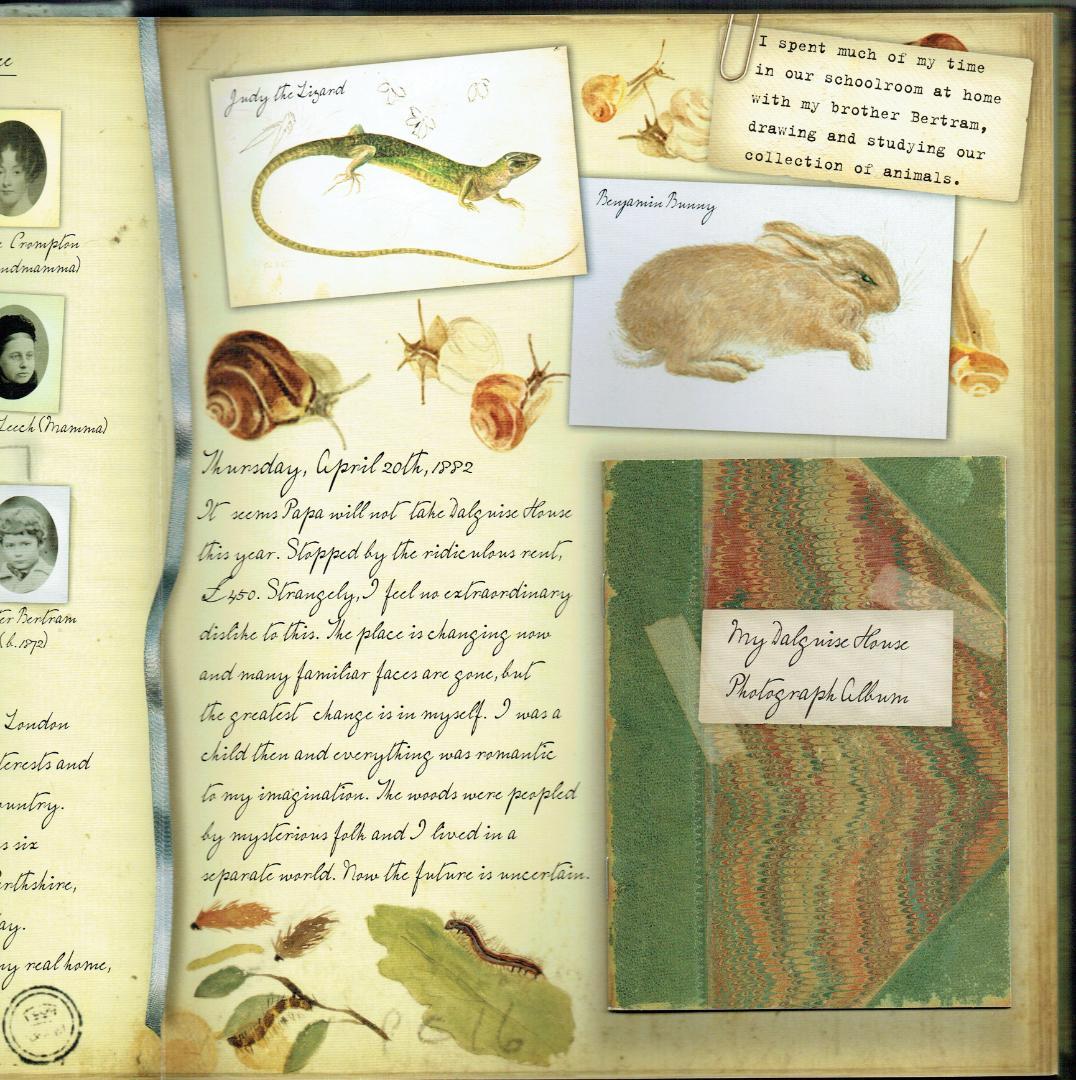 Crompton
Leech (Mamma)
Bertram
(b. 1872)
London
and
six
real home,
Judy the Lizard
I spent much of my time
in our schoolroom at home
with my brother Bertram,
drawing and studying our
collection of animals.
Benjamin Bunny
Thursday, April 20th, 1882
It seems Papa will not take Dalguise House
this year. Stopped by the ridiculous rent,
£450. Strangely, I feel no extraordinary
dislike to this. The place is changing now
and many familiar faces are gone, but
the greatest change is in myself. I was a
child then and everything was romantic
to my imagination. The woods were peopled
by mysterious folk and I lived in a
separate world. Now the future is uncertain.
My Dalguise House
Photograph Album